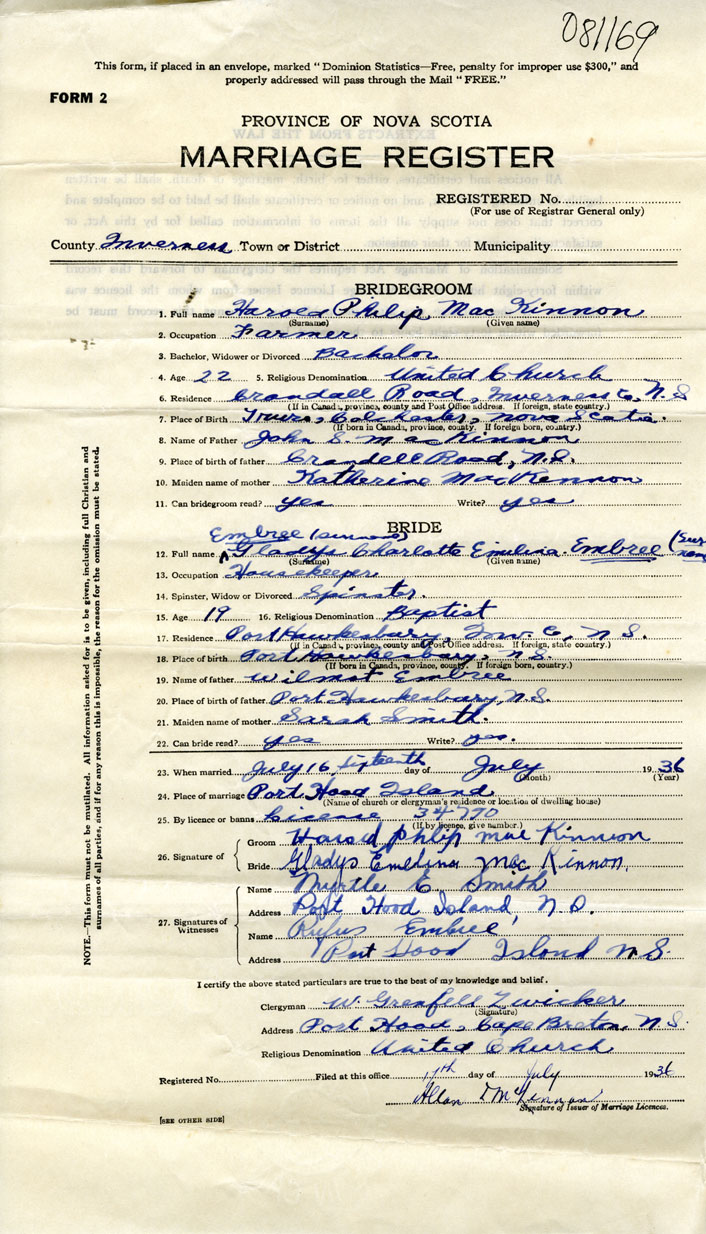 081169
This form, if placed in an envelope, marked "Dominion Statistics—Free, penalty for improper use $300," and
properly addressed will pass through the Mail "FREE."
FORM 2
PROVINCE OF NOVA SCOTIA
MARRIAGE REGISTER
REGISTERED No.
(For use of Registrar General only)
County Inverness Town or District Municipality
BRIDEGROOM
1. Full name Harold Philip MacKinnon
(Surname) (Given name)
2. Occupation Farmer
3. Bachelor, Widower or Divorced Bachelor
4. Age 22 5. Religious Denomination United Church
6. Residence Crandall Road, Inverness Co, N.S
(If in Canada, province, county and Post Office address. If foreign, state country.)
7. Place of Birth Truro, Colchester, Nova Scotia.
(If born in Canada, province, county. If foreign born, country.)
8. Name of Father John S. MacKinnon
9. Place of birth of father Crandell Road, N.S.
10. Maiden name of mother Katherine MacKennon
11. Can bridegroom read? yes Write? yes
BRIDE
Embree (surname)
12. Full name Gladys Charlotte Emilina Embree (Surname
(Surname) (Given name)
13. Occupation Housekeeper
14. Spinster, Widow or Divorced Spinster.
15. Age 19 16. Religious Denomination Baptist
17. Residence Port Hawkesbury, Inv. Co, N.S.
(If in Canada, province, county and Post Office address. If foreign, state country.)
18. Place of birth Port Hawkesbury, N.S.
(If born in Canada, province, county. If foreign born, country.)
19. Name of father Wilmot Embree
20. Place of birth of father Port Hawkesbury, N.S.
21. Maiden name of mother Sarah Smith.
22. Can bride read? yes Write? yes.
23. When married July 16, Sixteenth day of July 1936
(Month) (Year)
24. Place of marriage Port Hood Island
(Name of church or clergyman's residence or location of dwelling house)
25. By licence or banns License 34770
(If by licence, give number.)
26. Signature of Groom Harold Philip MacKinnon
Bride Gladys Emelina MacKinnon,
27. Signatures of Witnesses Name Myrtle E Smith
Address Port Hood Island, N.S.
Name Rufus Embree
Address Port Hood Island N.S.
I certify the above stated particulars are true to the best of my knowledge and belief.
Clergyman W. Grenfell Zwicker
(Signature)
Address Port Hood, Cape Breton, N.S.
Religious Denomination United Church
Registered No. Filed at this office 17th day of July 1936
Allan McKinnon
Signature of Issuer of Marriage Licences.
[SEE OTHER SIDE]
NOTE.—This form must not be mutilated. All information asked for is to be given, including full Christian and
surnames of all parties, and if for any reason this is impossible, the reason for the omission must be stated.